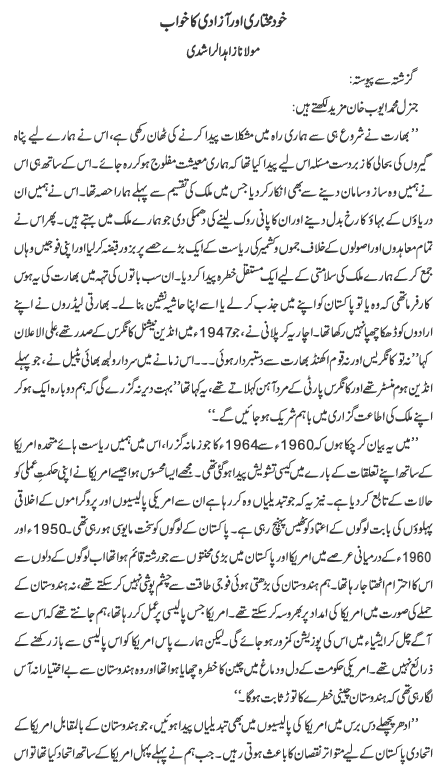 خود مختاری اور آزادی کا خواب
مولانا زاہد الراشدی
گزشتہ سے پیوستہ:
جنرل محمد ایوب خان مزید لکھتے ہیں:
’’بھارت نے شروع ہی سے ہماری راہ میں مشکلات پیدا کرنے کی ٹھان رکھی ہے، اس نے ہمارے لیے پناہ
گیروں کی بحالی کا زبردست مسئلہ اس لیے پیدا کیا تھا کہ ہماری معیشت مفلوج ہو کر رہ جائے۔ اس کے ساتھ ہی اس
نے ہمیں وہ ساز و سامان دینے سے بھی انکار کر دیا جس میں ملک کی تقسیم سے پہلے ہمارا حصہ تھا۔ اس نے ہمیں ان
دریاؤں کے بہاؤ کا رخ بدل دینے اور ان کا پانی روک لینے کی دھمکی دی جو ہمارے ملک میں بہتے ہیں۔ پھر اس نے
تمام معاہدوں اور اصولوں کے خلاف جموں و کشمیر کی ریاست کے ایک بڑے حصے پر بزور قبضہ کر لیا اور اپنی فوجیں وہاں
جمع کر کے ہمارے ملک کی سلامتی کے لیے ایک مستقل خطرہ پیدا کر دیا۔ ان سب باتوں کی تہہ میں بھارت کی یہ ہوس
کارفرما تھی کہ وہ یا تو پاکستان کو اپنے میں جذب کر لے یا اسے اپنا حاشیہ نشین بنا لے۔ بھارتی لیڈروں نے اپنے
ارادوں کو ڈھکا چھپا نہیں رکھا تھا۔ اچاریہ کرپلانی نے، جو 1947ء میں انڈین نیشنل کانگرس کے صدر تھے، علی الاعلان
کہا ’’نہ تو کانگریس اور نہ قوم اکھنڈ بھارت سے دستبردار ہوئی۔۔۔ اس زمانے میں سردار ولبھ بھائی پٹیل نے، جو پہلے
انڈین ہوم منسٹر تھے اور کانگرس پارٹی کے مرد آہن کہلاتے تھے، یہ کہا تھا ’’بہت دیر نہ گزرے گی کہ ہم دوبارہ ایک ہو کر
اپنے ملک کی اطاعت گزاری میں باہم شریک ہو جائیں گے۔‘‘
’’میں یہ بیان کر چکا ہوں کہ 1960ء سے 1964ء کا جو زمانہ گزرا، اس میں ہمیں ریاست ہائے متحدہ امریکا
کے ساتھ اپنے تعلقات کے بارے میں کیسی تشویش پیدا ہو گئی تھی۔ مجھے ایسا محسوس ہوا جیسے امریکا نے اپنی حکمت عملی کو
حالات کے تابع کر دیا ہے۔ نیز یہ کہ جو تبدیلیاں وہ کر رہا ہے ان سے امریکی پالیسیوں اور پروگراموں کے اخلاقی
پہلوؤں کی بابت لوگوں کے اعتماد کو ٹھیس پہنچ رہی ہے۔ پاکستان کے لوگوں کو سخت مایوسی ہو رہی تھی۔ 1950ء اور
1960ء کے درمیانی عرصے میں امریکا اور پاکستان میں بڑی محنتوں سے جو رشتہ قائم ہوا تھا اب لوگوں کے دلوں سے
اس کا احترام اٹھتا جا رہا تھا۔ ہم ہندوستان کی بڑھتی ہوئی فوجی طاقت سے چشم پوشی نہیں کر سکتے تھے، نہ ہندوستان کے
حملے کی صورت میں امریکا کی امداد پر بھروسہ کر سکتے تھے۔ امریکا جس پالیسی پر عمل کر رہا تھا، ہم جانتے تھے کہ اس سے
آگے چل کر ایشیاء میں اس کی پوزیشن کمزور ہو جائے گی۔ لیکن ہمارے پاس امریکا کو اس پالیسی سے باز رکھنے کے
ذرائع نہیں تھے۔ امریکی حکومت کے دل و دماغ میں چین کا خطرہ چھایا ہوا تھا اور وہ ہندوستان سے بے اختیارانہ آس
لگا رہی تھی کہ ہندوستان چینی خطرے کا توڑ ثابت ہو گا۔‘‘
’’ادھر پچھلے دس برس میں امریکا کی پالیسیوں میں بھی تبدیلیاں پیدا ہوئیں، جو ہندوستان کے بالمقابل امریکا کے
اتحادی پاکستان کے لیے متواتر نقصان کا باعث ہوتی رہیں۔ جب ہم نے پہلے پہل امریکا کے ساتھ اتحاد کیا تھا تو اس